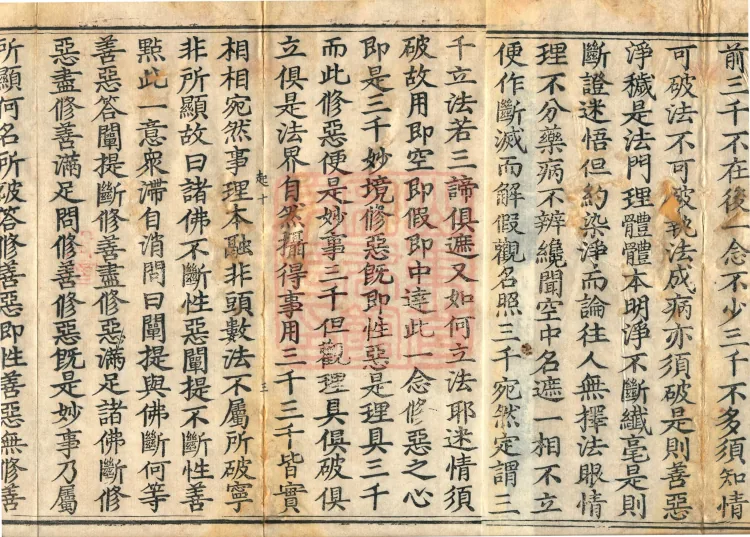 前三千不在後一念不少三千不多須知情
可破法不可破執法成病亦須破是則善惡
淨穢是法門理體體本明淨不斷纖毫是則
斷證迷悟但約染淨而論往人無擇法眼情
理不分藥病不辨纔聞空中名遮一相不立
便作斷滅而解假觀名照三千宛然定謂三
千立法若三諦俱遮又如何立法耶迷情須
破故用即空即假即中達此一念修惡之心
即是三千妙境修惡旣即性惡是理具三千
而此修惡便是妙事三千但觀理具俱破俱
立俱是法界自然攝得事用三千三千皆實
起十 三
相相宛然事理本融非頭數法不屬所破寧
非所顯故曰諸佛不斷性惡闡提不斷性善
點此一意衆滯自消問曰闡提與佛斷何等
善惡答闡提斷修善盡修惡滿足諸佛斷修
惡盡修善滿足問修善修惡旣是妙事乃屬
所顯何名所破答修善惡即性善惡無修善